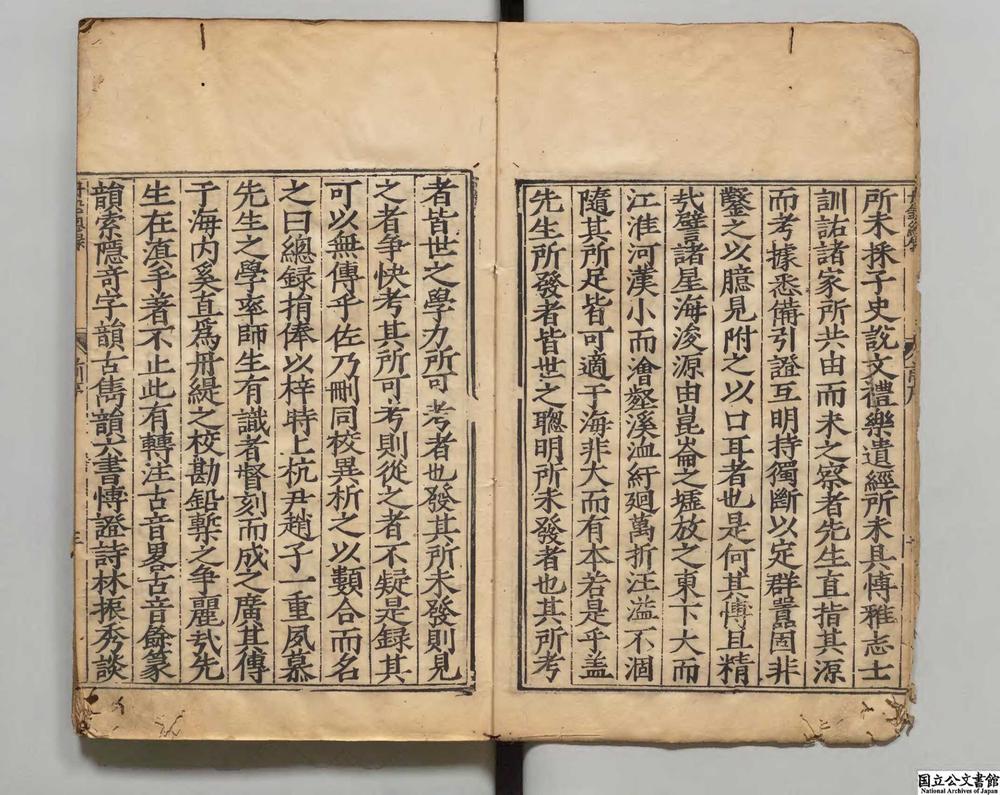 所未採子史說文禮樂遺經所未具愽雅志士
訓詁諸家所共由而未之察者先生直指其源
而考據悉備引證互明持獨斷以定群嚚固非
鑿之以臆見附之以口耳者也是何其愽且精
㢤譬諸星海浚源由崑崙之墟放之東下大而
江淮河漢小而澮壑溪洫紆廻萬折汪溢不涸
隨其所足皆可適于海非大而有本若是乎盖
先生所發者皆世之聰明所未發者也其所考
者皆世之學力所可考者也發其所未發則見
之者爭快考其所可考則從之者不疑是録其
可以無傳乎佐乃刪同校異析之以類合而名
之曰總録捐俸以梓時上杭尹趙子一重夙慕
先生之學率師生有識者督刻而成之廣其傳
于海内奚直爲丹緹之校勘鉛槧之争麗㢤先
生在滇手著不止此有轉注古音畧古音餘篆
韻索隱奇字韻古雋韻六書愽證詩林振秀談
国立公文書館
National Archives of Japan